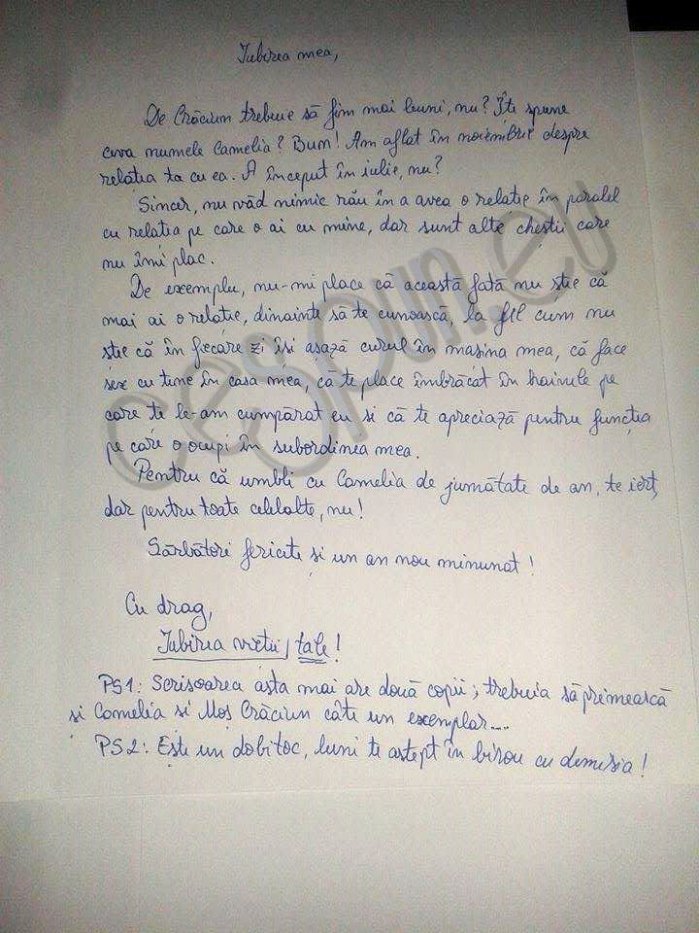 Iubirea mea,
De Crăciun trebuie să fim mai buni, nu? Îți spune
ceva numele Camelia? Bum! Am aflat în noiembrie despre
relația ta cu ea. A început în iulie, nu?
Sincer, nu văd nimic rău în a avea o relație în paralel
cu relația pe care o ai cu mine, dar sunt alte chestii care
nu îmi plac.
De exemplu, nu-mi place că această fată nu știe că
mai ai o relație, dinainte să te cunoască, la fel cum nu
știe că în fiecare zi își așază curul în mașina mea, că face
sex cu tine în casa mea, că te place îmbrăcat în hainele pe
care ți le-am cumpărat eu și că te apreciază pentru funcția
pe care o ocupi în subordinea mea.
Pentru că umbli cu Camelia de jumătate de an, te iert,
dar pentru toate celelalte, nu!
Sărbători fericite și un an nou minunat!
Cu drag,
Iubirea vieții tale!
PS1: Scrisoarea asta mai are două copii; trebuia să primească
și Camelia și Moș Crăciun câte un exemplar...
PS2: Ești un dobitoc, luni te aștept în birou cu demisia!
cespun.eu